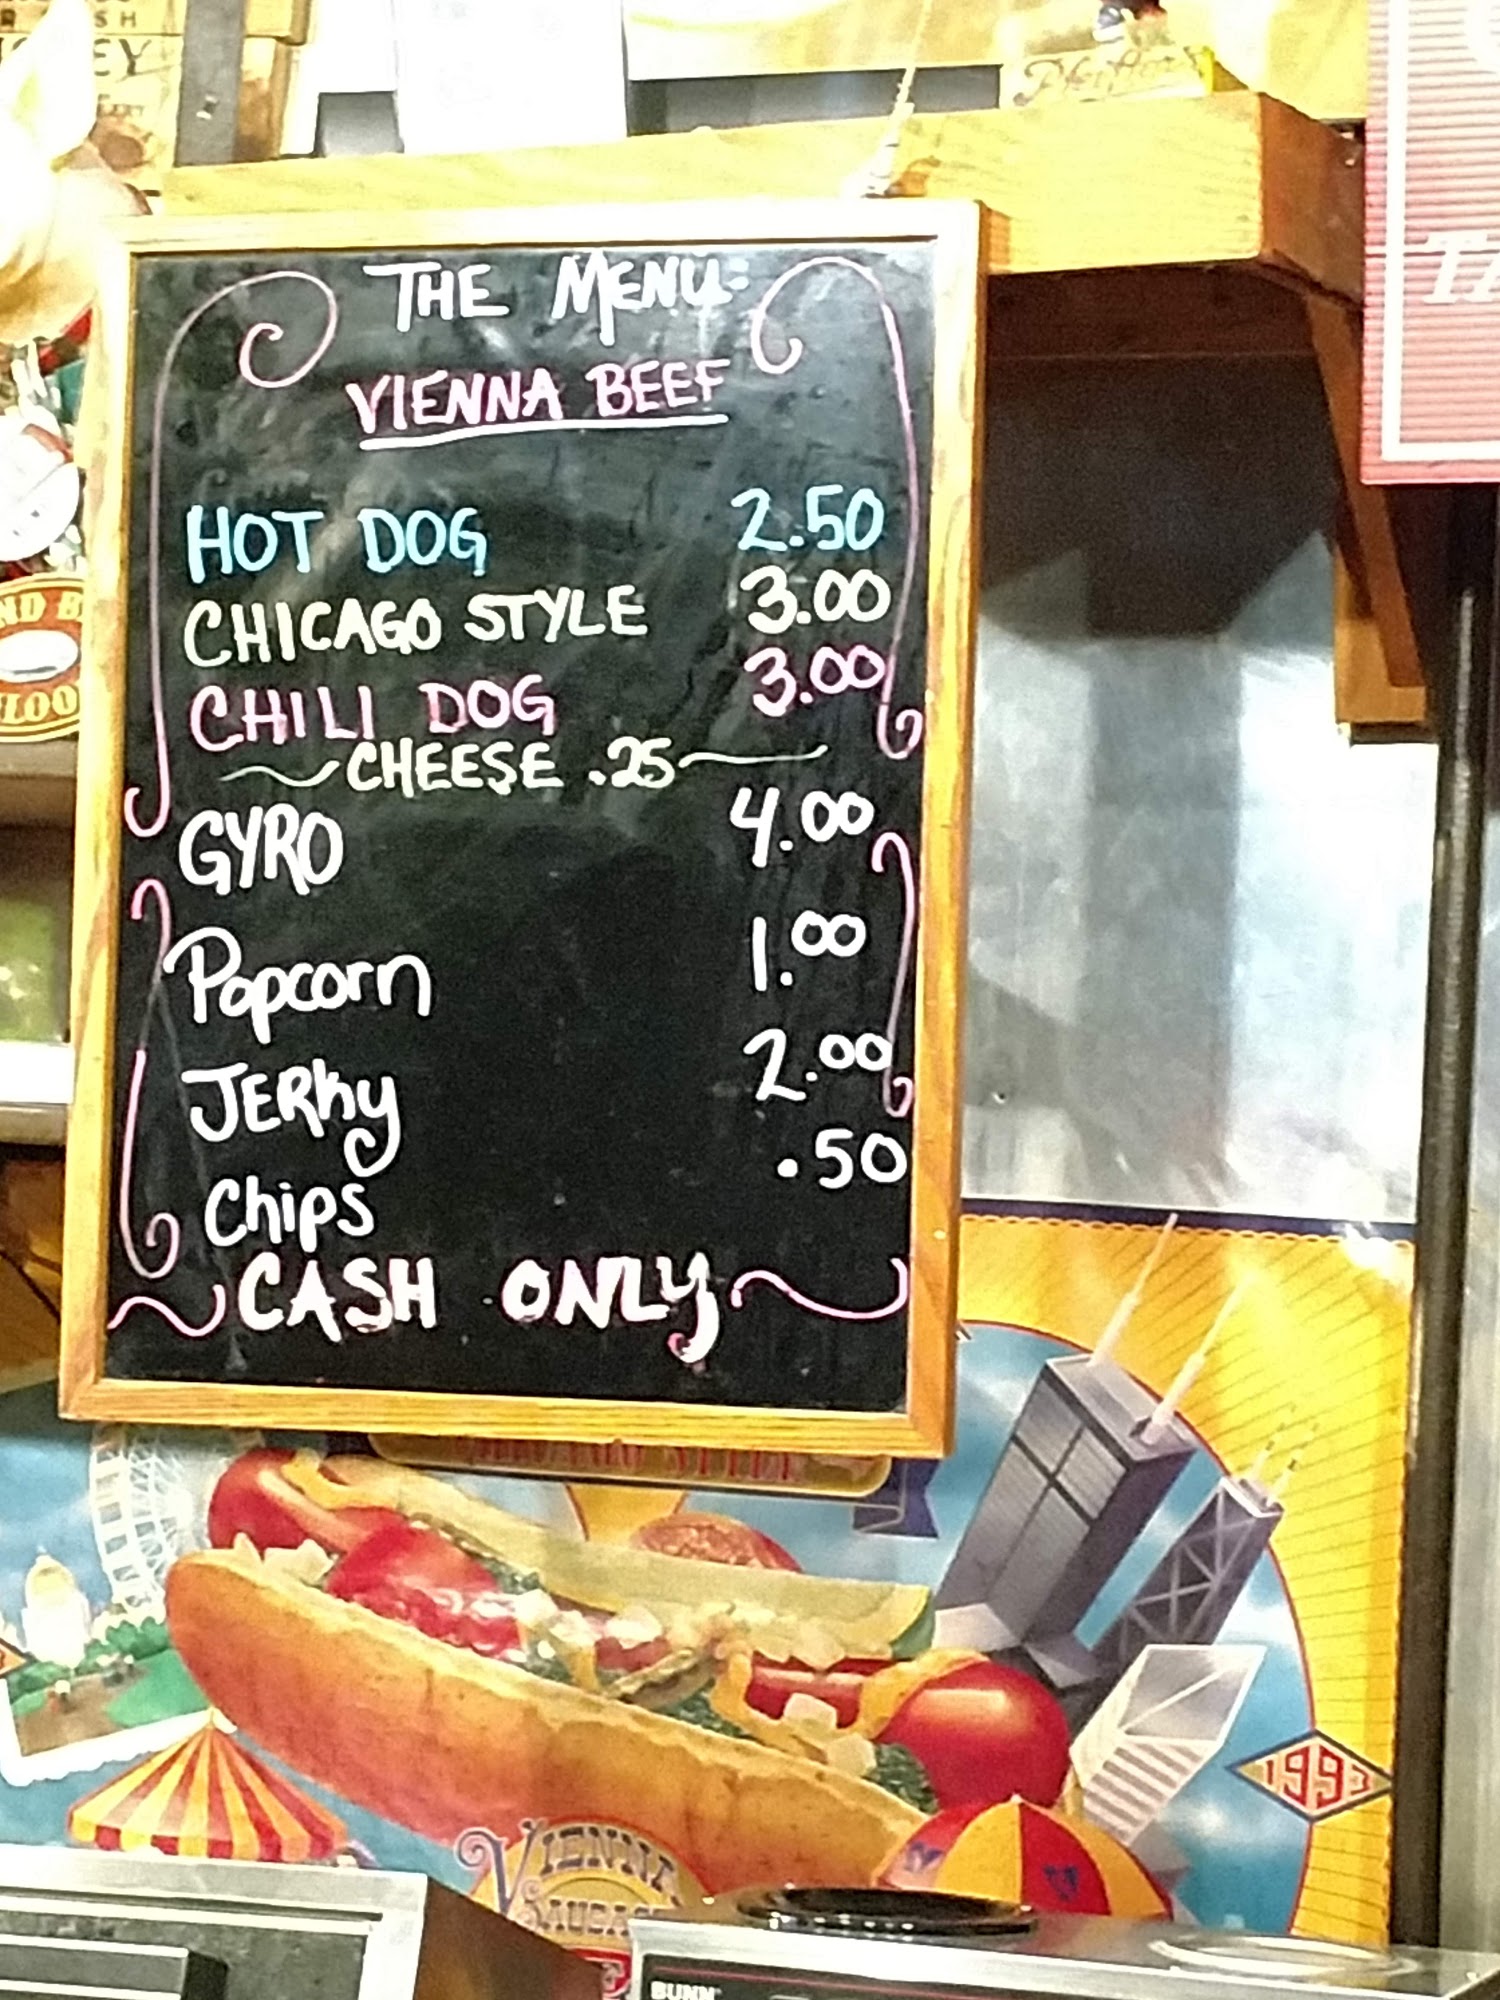 THE MENU:
VIENNA BEEF
HOT DOG 2.50
CHICAGO STYLE 3.00
CHILI DOG 3.00
CHEESE .25
GYRO 4.00
Popcorn 1.00
JERky 2.00
Chips .50
CASH ONLY
1993
VIENNA
BUNN